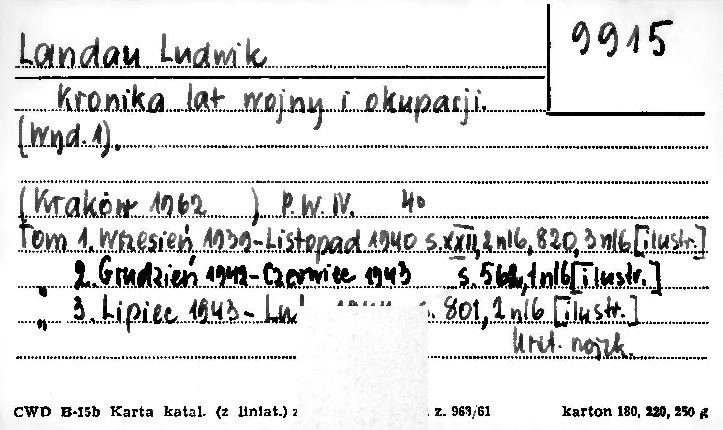 9915
Landau Ludwik
Kronika lat wojny i okupacji.
(Wyd. 1).
(Kraków 1962 ) P.W.N. 4°
Tom 1. Wrzesień 1939-Listopad 1940 s. XXII, 2 nlb, 820, 3 nlb [ilustr.]
" 2. Grudzień 1942-Czerwiec 1943 s. 562, 1 nlb [ilustr.]
" 3. Lipiec 1943- s. 801, 2 nlb [ilustr.]
CWD B-15b Karta katal. (z liniat.) z. 963/61 karton 180, 220, 250 g